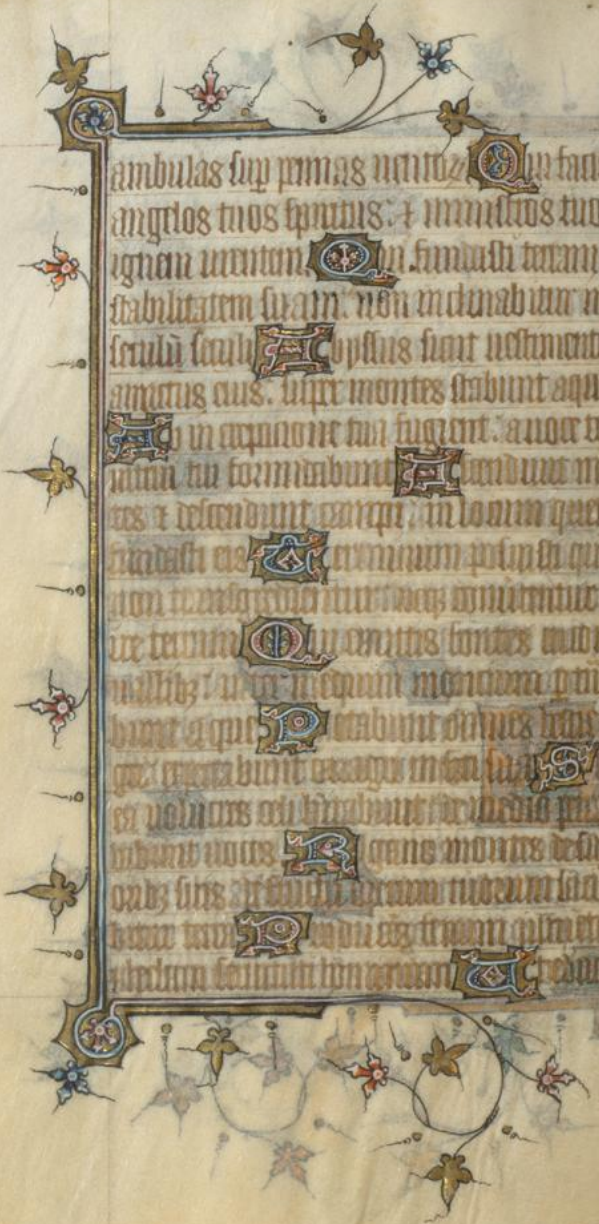 ambulas sup pennas uentoꝝ Qui faci
angelos tuos spiritus: ⁊ ministros tuo
ignem urentem Qui fundasti terram
stabilitatem suam: non inclinabitur in
seculū seculi Abyssus sicut uestiment
amictus eius: super montes stabunt aqu
Ab increpatione tua fugient: a uoce t
tui formidabunt Ascendunt m
tes ⁊ descendunt campi: in locum que
fundasti eis Terminum posuisti qu
non transgredientur: neqꝫ conuertentur
terram Qui emittis fontes
uallibꝫ: inter medium montium
bunt aque Potabunt omnes
expectabunt onagri in siti sua S
ea uolucres celi habitabunt: de medio pe
dabunt uoces Rigans montes de su
oribꝫ suis: de fructu operum tuorum sacia
terra
herbam seruituti hominum